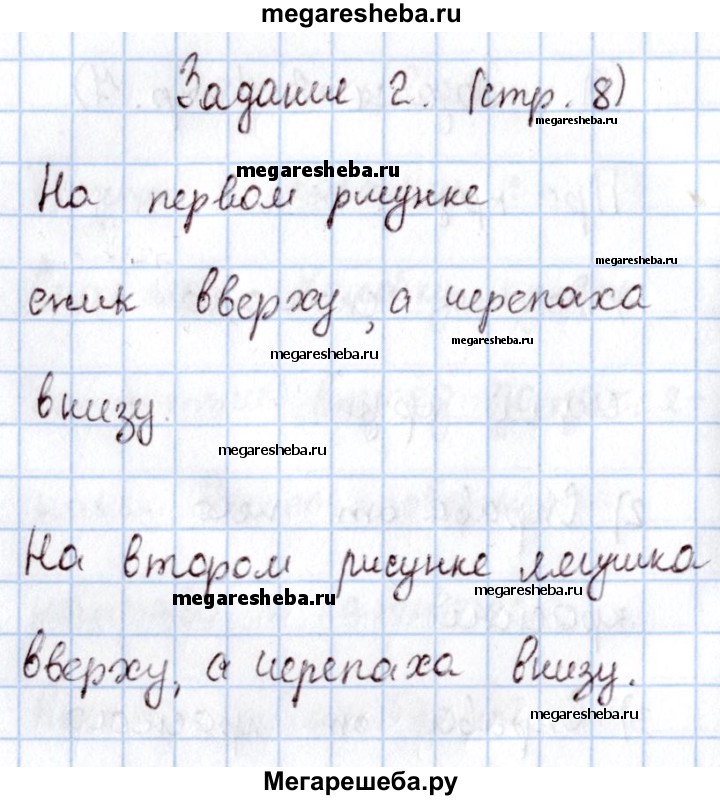 megaresheba.ru
Задание 2. (стр. 8)
megaresheba.ru
megaresheba.ru
На первом рисунке
megaresheba.ru
ежик вверху, а черепаха
megaresheba.ru
megaresheba.ru
внизу.
megaresheba.ru
На втором рисунке лягушка
megaresheba.ru
megaresheba.ru
вверху, а черепаха внизу.
megaresheba.ru
Мегарешеба.ру